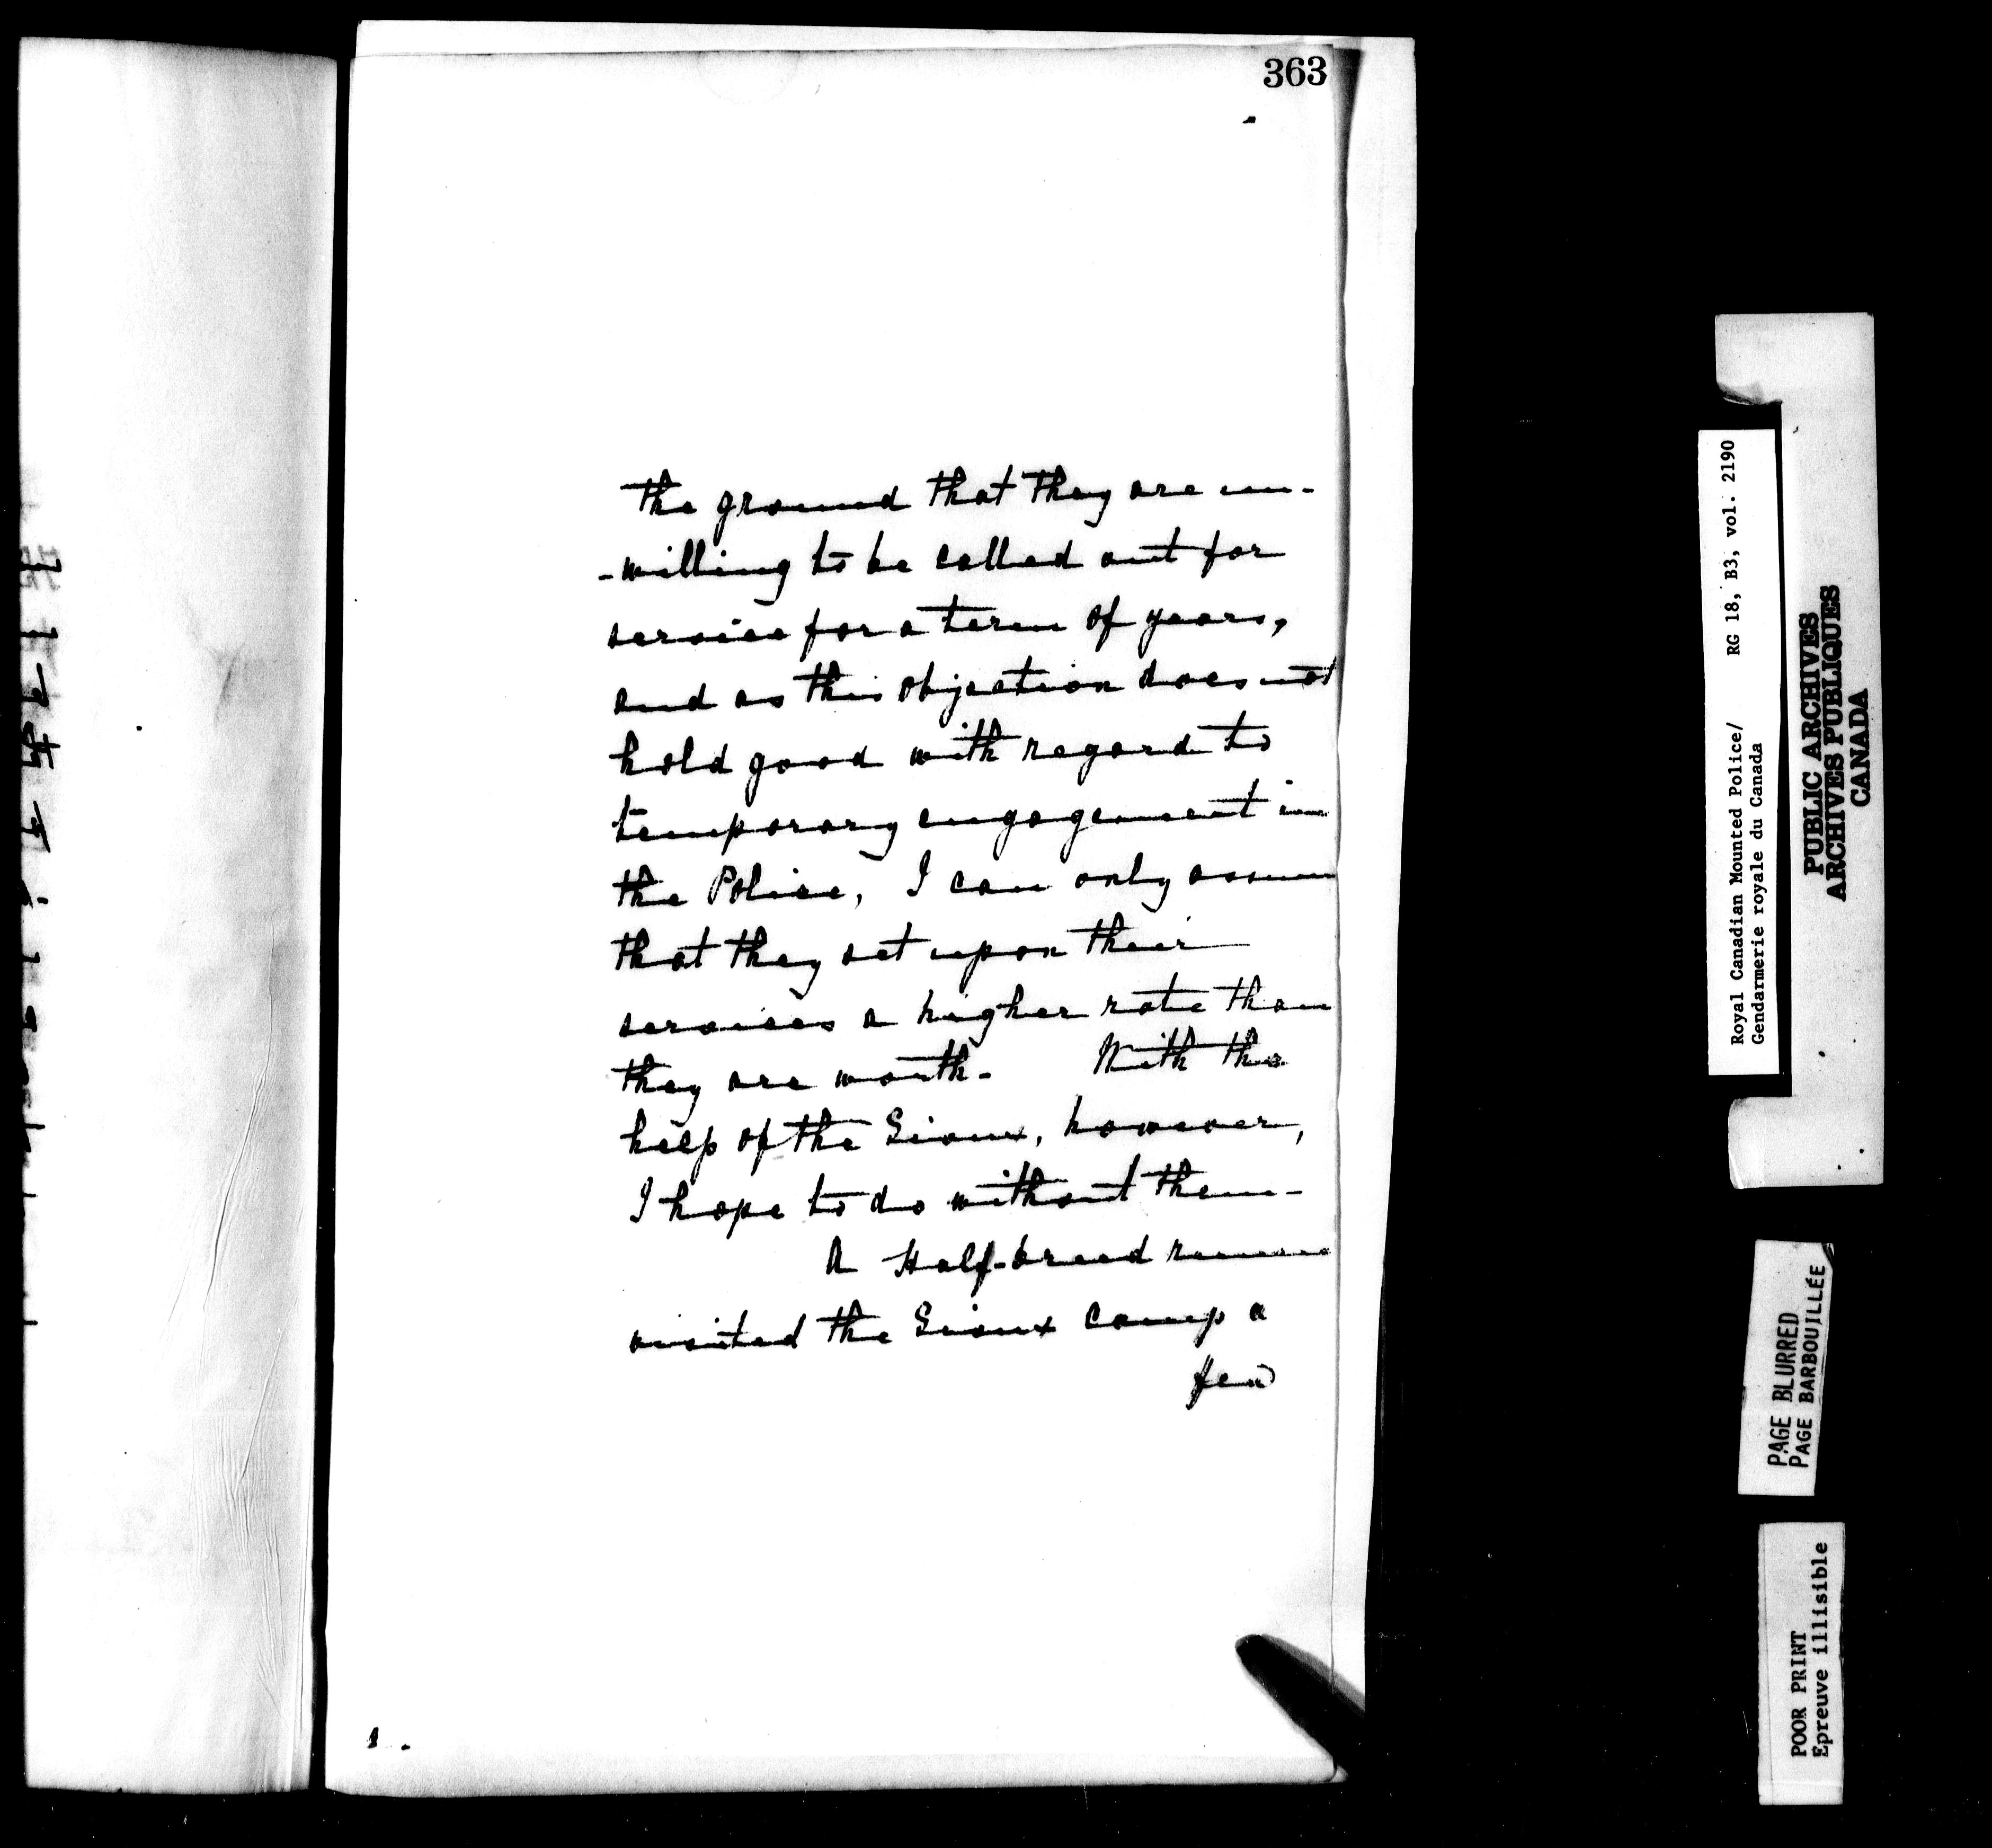 363
the ground that they are un-
-willing to be called out for
service for a term of years,
and as this objection does not
hold good with regard to
temporary engagement in
the Police, I can only assume
that they set upon their
services a higher rate than
they are worth. With the
help of the Sioux, however,
I hope to do without them-
A Half-breed
visited the Sioux camp a
few
Royal Canadian Mounted Police/ RG 18, B3, vol. 2190
Gendarmerie royale du Canada
PUBLIC ARCHIVES
ARCHIVES PUBLIQUES
CANADA
PAGE BLURRED
PAGE BARBOUILLÉE
POOR PRINT
Epreuve illisible